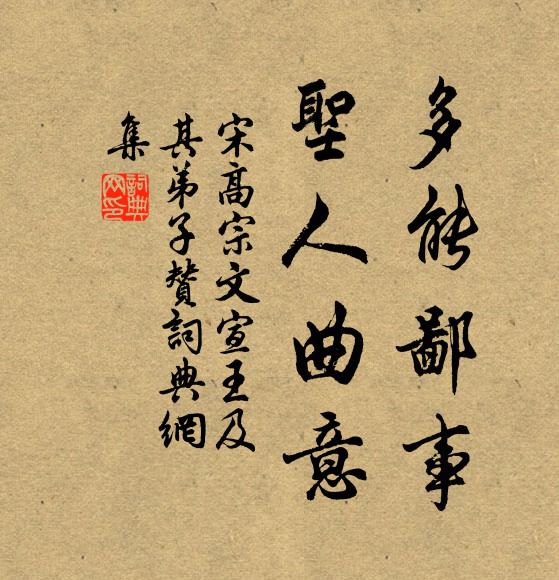 多能鄙事
聖人曲意
宋高宗文宣王及
其弟子贊詞典網
集
詞典網印